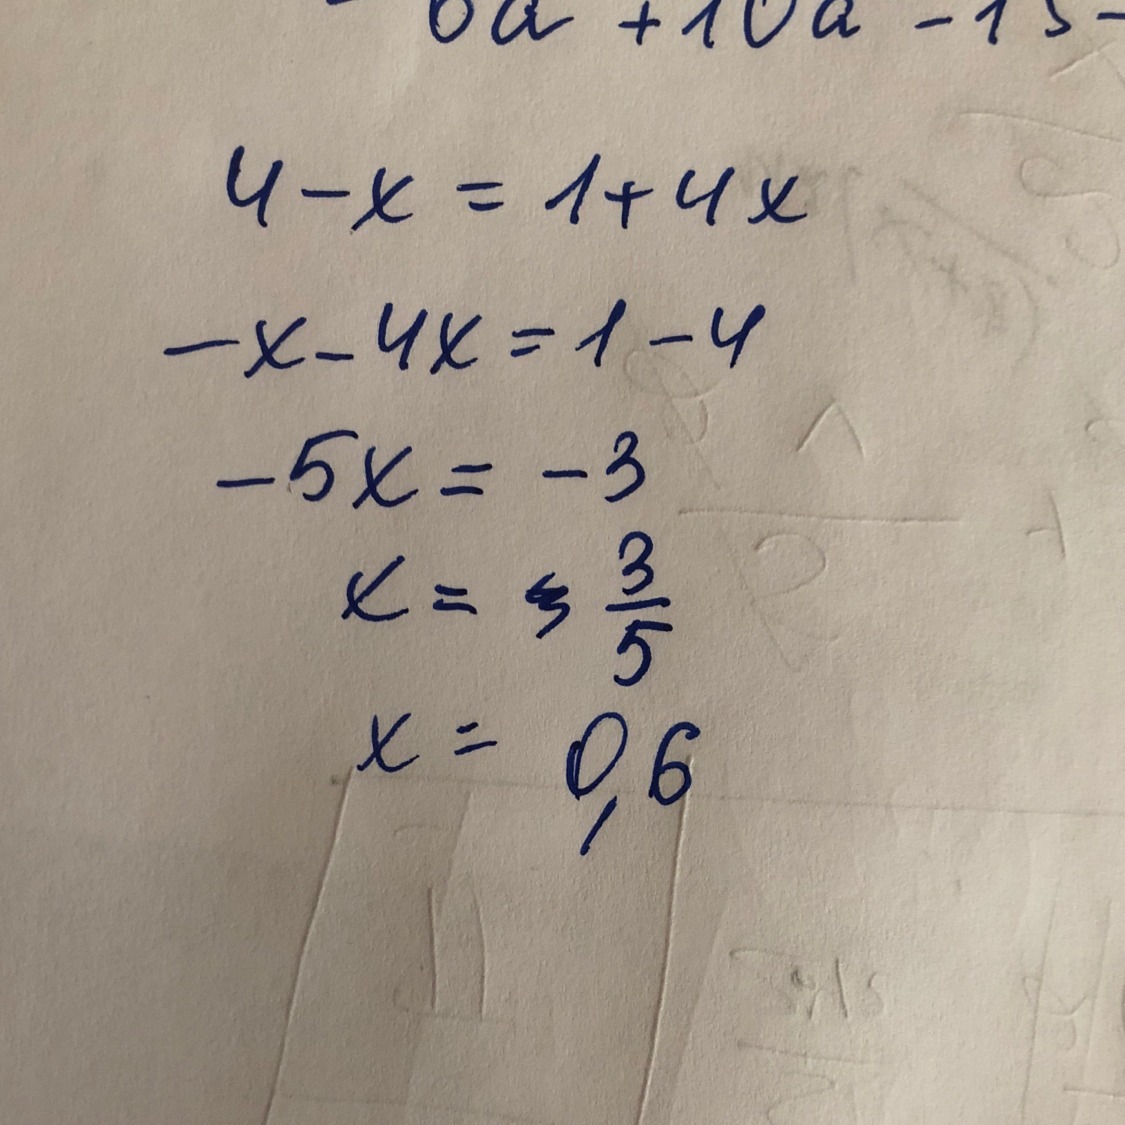 6a + 10a - 13 -
4 - x = 1 + 4x
-x - 4x = 1 - 4
-5x = -3
x = 3/5
x = 0,6